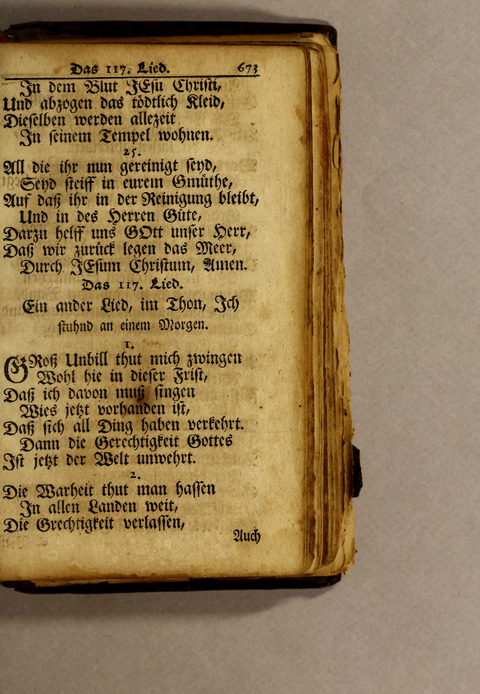 Das 117. Lied. 673
In dem Blut JEsu Christi,
Und abzogen das tödtlich Kleid,
Dieselben werden allezeit
In seinem Tempel wohnen.
25.
All die ihr nun gereinigt seyd,
Seyd steiff in eurem Gmüthe,
Auf daß ihr in der Reinigung bleibt,
Und in des Herren Güte,
Darzu helff uns GOtt unser Herr,
Daß wir zurück legen das Meer,
Durch JEsum Christum, Amen.
Das 117. Lied.
Ein ander Lied, im Thon, Ich
stuhnd an einem Morgen.
1.
GRoß Unbill thut mich zwingen
Wohl hie in dieser Frist,
Daß ich davon muß singen
Wies jetzt vorhanden ist,
Daß sich all Ding haben verkehrt.
Dann die Gerechtigkeit Gottes
Ist jetzt der Welt unwehrt.
2.
Die Warheit thut man hassen
In allen Landen weit,
Die Grechtigkeit verlassen,
Auch